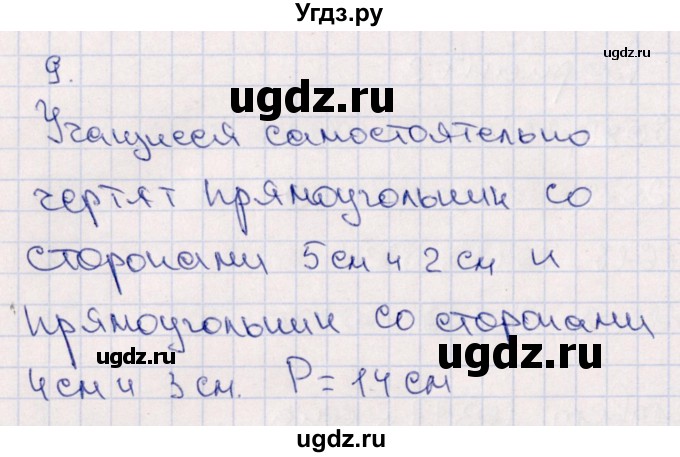 Угдз.ру
ugdz.ru
9.
ugdz.ru
Учащиеся самостоятельно
чертят прямоугольник со
сторонами 5 см и 2 см и
ugdz.ru
прямоугольник со сторонами
ugdz.ru
ugdz.ru
4 см и 3 см. P = 14 см
ugdz.ru